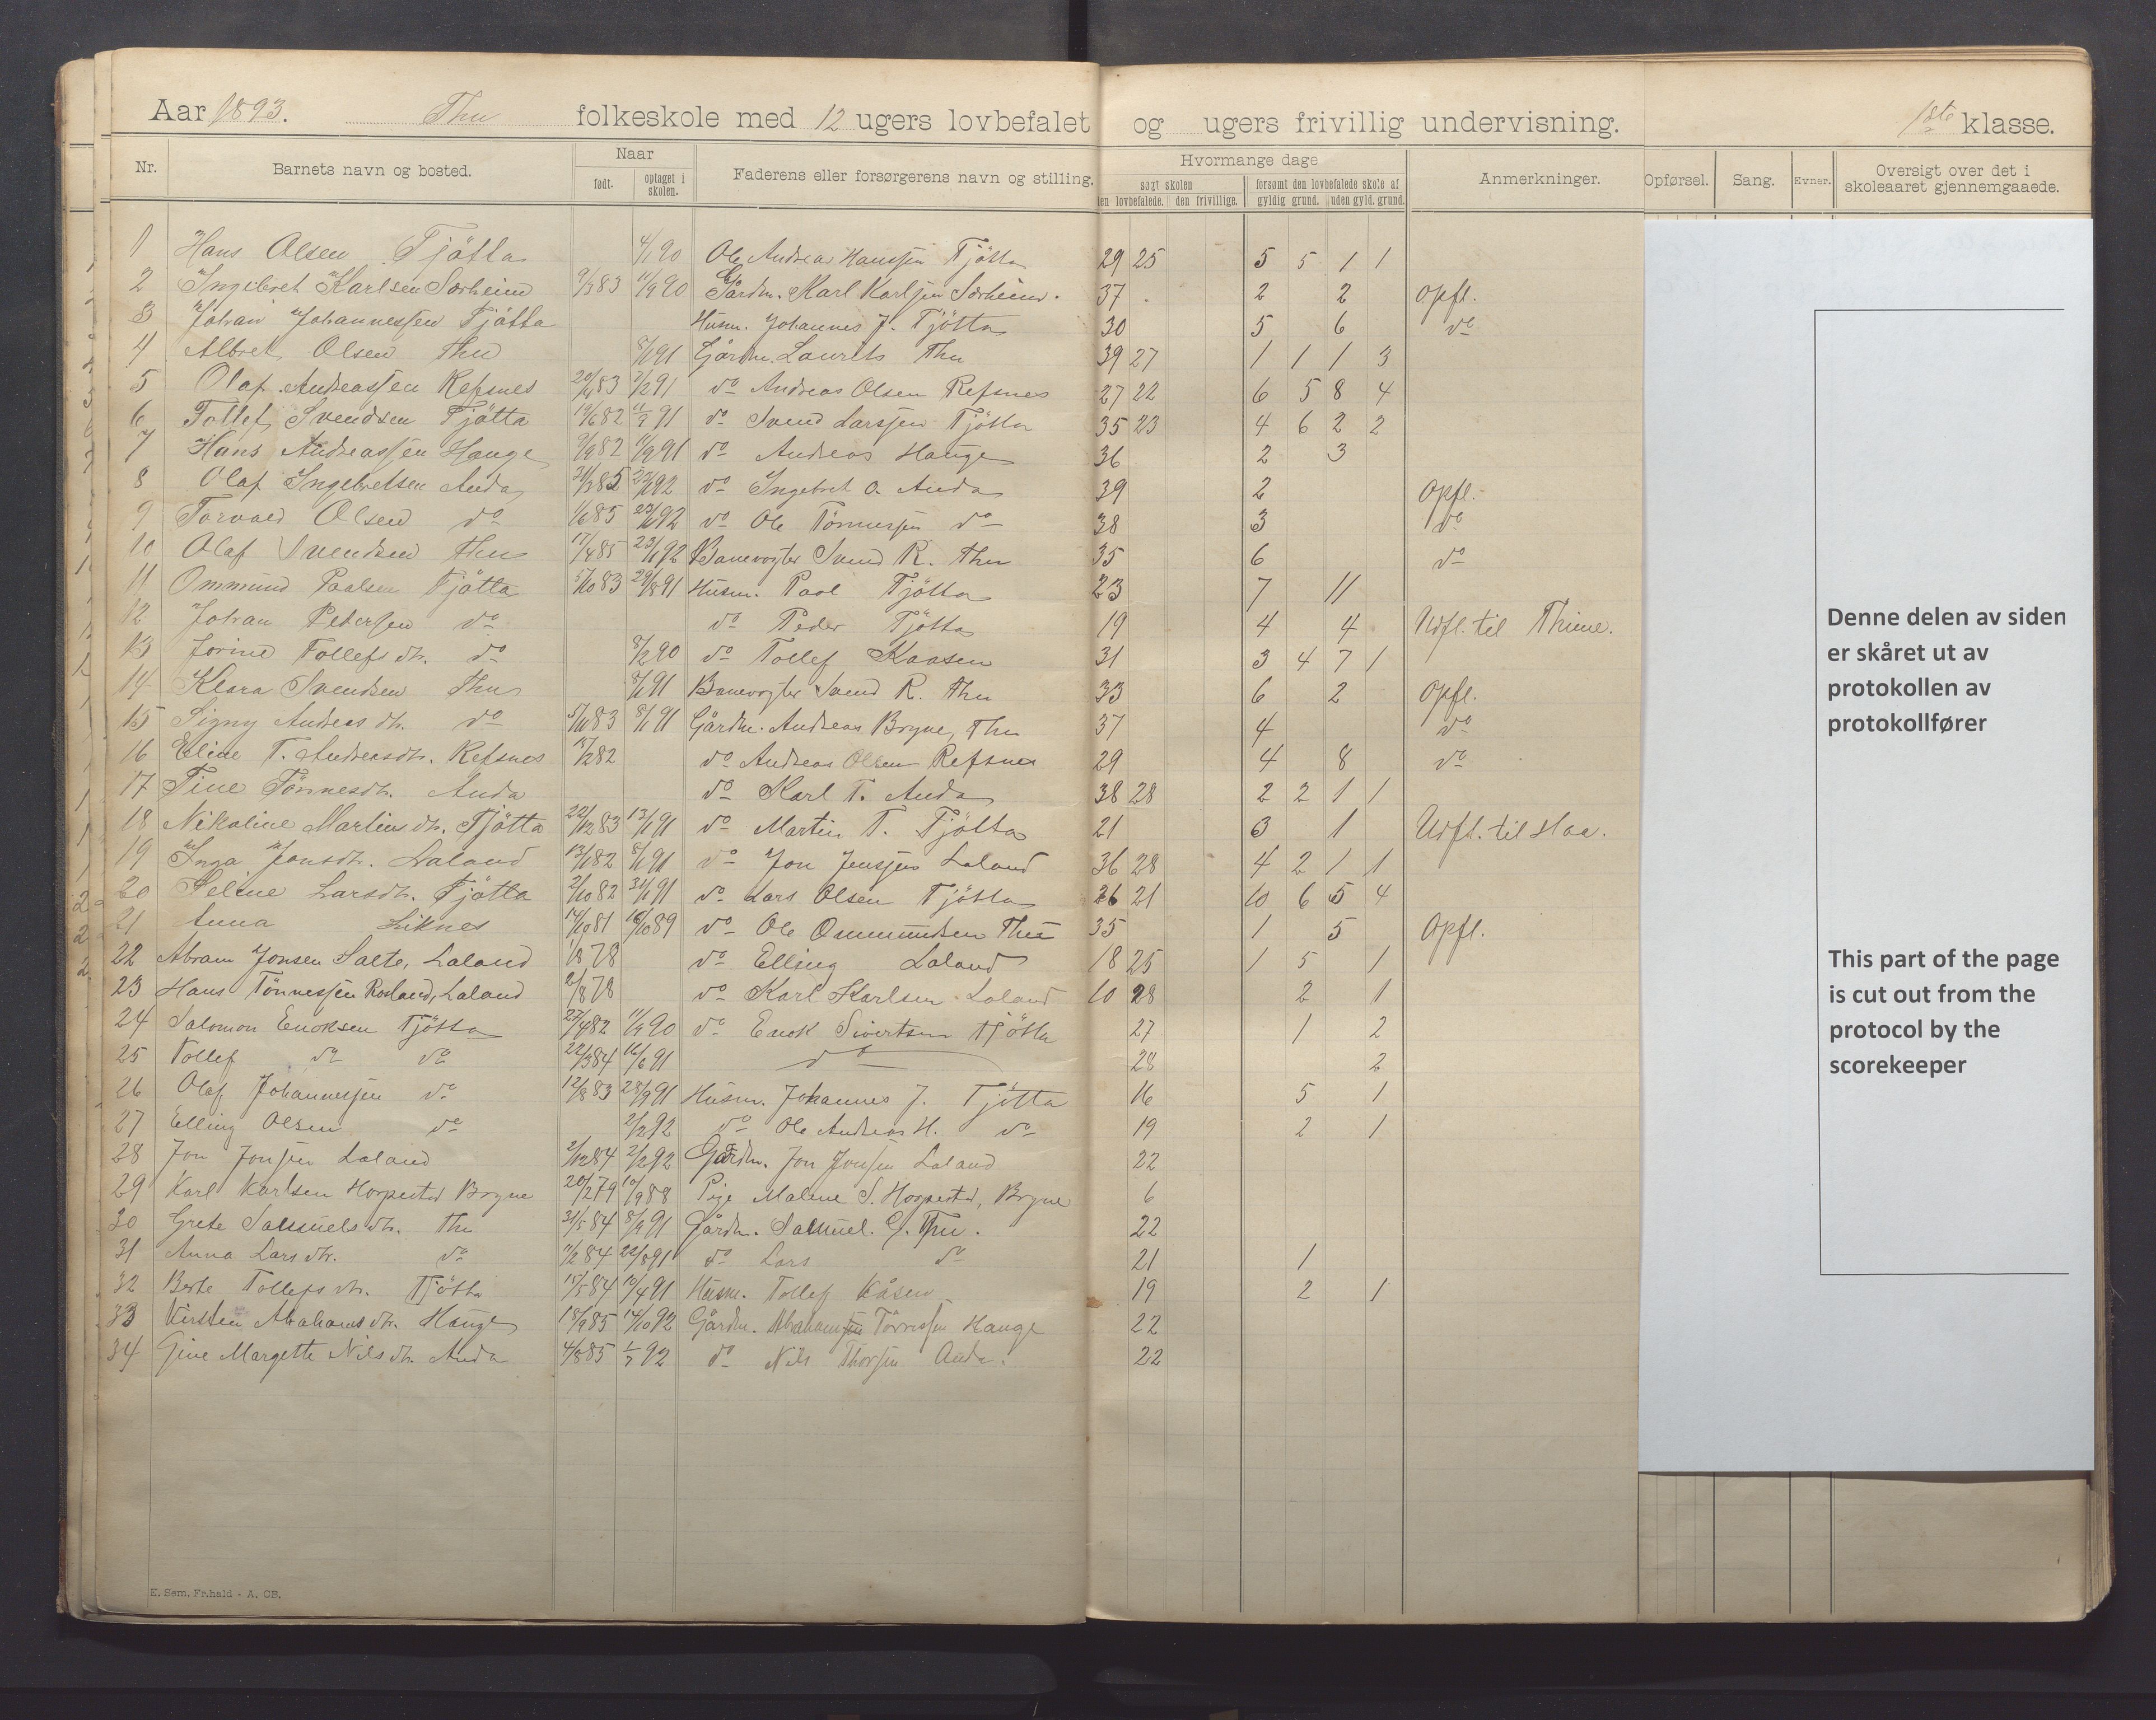 Aar 1893. Thu folkeskole med 12 ugers lovbefalet og ugers frivillig undervisning. 1ste klasse.
Nr. Barnets navn og bosted. Naar født. optaget i skolen. Faderens eller forsørgerens navn og stilling. Hvormange dage søgt skolen den lovbefalede. den frivillige. forsømt den lovbefalede skole af gyldig grund. uden gyld. grund. Anmerkninger. Opførsel. Sang. Evner. Oversigt over det i skoleaaret gjennemgaaede.
1 Hans Olsen Tjøtta 4/1 90 Ole Andreas Hanssen Tjøtta 29 25 5 5 1 1
2 Ingebret Karlsen Sørheim 9/3 83 11/9 90 Gårdm. Karl Karlsen Sørheim. 37 2 2 Opfl.
3 Johan Johannessen Tjøtta Husm. Johannes J. Tjøtta 30 5 6 do
4 Albret Olsen Thu 8/1 91 Gårdm. Laurits Thu 39 27 1 1 1 3
5 Olaf Andreassen Refsnes 83 91 do Andreas Olsen Refsnes 27 22 6 5 8 4
6 Tollef Svendsen Tjøtta 19/6 82 11/9 91 do Svend Larssen Tjøtta 35 23 4 6 2 2
7 Hans Andreassen Hauge 9/9 82 11/9 91 do Andreas Hauge 36 2 3
8 Olaf Ingebretsen Anda 31/3 85 23/1 92 do Ingebret O. Anda 39 2 Opfl.
9 Torvald Olsen do 1/6 85 23/1 92 do Ole Tønnessen do 38 3 do
10 Olaf Svendsen Thu 17/4 85 23/1 92 Banevogter Svend R. Thu 35 6 do
11 Ommund Paalsen Tjøtta 5/10 83 29/8 91 Husm. Paal Tjøtta 23 7 11
12 Johan Pedersen do do Peder Tjøtta 19 4 4 Udfl. til Thime.
13 Jorine Tollefsdtr. do 8/2 90 do Tollef Kaasen 31 3 4 7 1
14 Klara Svendsen Thu 8/1 91 Banevogter Svend R. Thu 33 6 2 Opfl.
15 Signy Andreasdtr. do 5/10 83 8/1 91 Gårdm. Andreas Bryne, Thu 37 4 do
16 Eline T. Andreasdtr. Refsnes 82 do Andreas Olsen Refsnes 29 4 8 do
17 Tine Tønnesdtr. Anda do Karl T. Anda 38 28 2 2 1 1
18 Nikoline Martinsdtr. Tjøtta 22/12 83 13/1 91 do Martin T. Tjøtta 21 3 1 Udfl. til Haa.
19 Inga Jonsdtr. Laland 13/1 82 8/1 91 do Jon Jenssen Laland 36 28 4 2 1 1
20 Seline Larsdtr. Tjøtta 2/10 82 31/1 91 do Lars Olsen Tjøtta 26 21 10 6 5 4
21 Anna Liknes 14/10 81 16/10 89 do Ole Ommundsen Thu 35 1 5 Opfl.
22 Abram Jonsen Salte, Laland 1/8 78 do Elling Laland 18 25 1 5 1
23 Hans Tønnessen Rosland, Laland 2/8 78 do Karl Karlsen Laland 10 28 2 1
24 Salomon Enoksen Tjøtta 27/4 82 11/9 90 do Enok Sivertsen Tjøtta 27 1 2
25 Tollef do do 22/3 84 16/6 91 do 28 2
26 Olaf Johannessen do 12/8 83 28/9 91 Husm. Johannes J. Tjøtta 16 5 1
27 Elling Olsen do 2/2 92 do Ole Andreas H. do 19 2 1
28 Jon Jonsen Laland 2/12 84 2/2 92 Gårdm. Jon Jonsen Laland 22
29 Karl Karlsen Horpestad Bryne 20/2 79 10/9 88 Pige Malene S. Horpestad, Bryne 6
30 Grete Samuelsdtr. Thu 31/5 84 8/9 91 Gårdm. Samuel G. Thu. 22
31 Anna Larsdtr. do 84 22/8 91 do Lars do 21 1
32 Berte Tollefsdtr. Tjøtta 15/5 84 10/4 91 Husm. Tollef Kåsen 19 2 1
33 Kirsten Abrahamsdtr. Hauge 18/9 85 14/10 92 Gårdm. Abraham Tønnessen Hauge 22
34 Gine Margette Nilsdtr. Anda 4/8 85 1/7 92 do Nils Thorsen Anda. 22
Denne delen av siden
er skåret ut av
protokollen av
protokollfører
This part of the page
is cut out from the
protocol by the
scorekeeper
E. Sem, Fr.hald - A. CB.